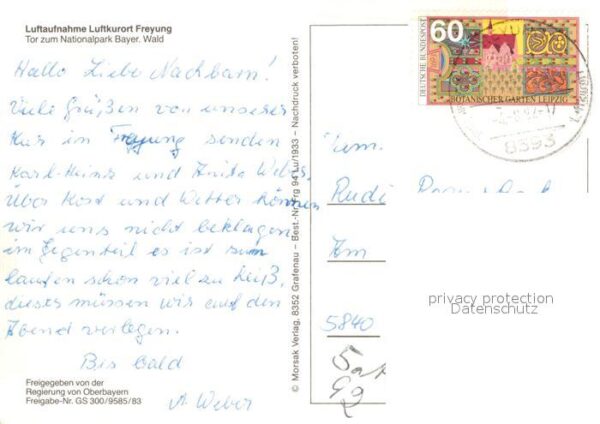 Luftaufnahme Luftkurort Freyung
Tor zum Nationalpark Bayer. Wald
Hallo Liebe Nachbarn!
Viele Grüßen von unserer
Kur in Freyung senden
Karl-Heinz und Anita Weber.
Über Kost und Wetter können
wir uns nicht beklagen
im Gegenteil es ist zum
laufen schon viel zu heiß,
dieses müssen wir auf den
Abend verlegen.
Bis bald
A. Weber
Freigegeben von der
Regierung von Oberbayern
Freigabe-Nr. GS 300/9585/83
© Morsak Verlag, 8352 Grafenau – Best.-Nr. Frg 94 Lu/1933 – Nachdruck verboten!
DEUTSCHE BUNDESPOST
60
BOTANISCHER GARTEN LEIPZIG
8393
Fam.
Rudi
Am
5840
privacy protection
Datenschutz